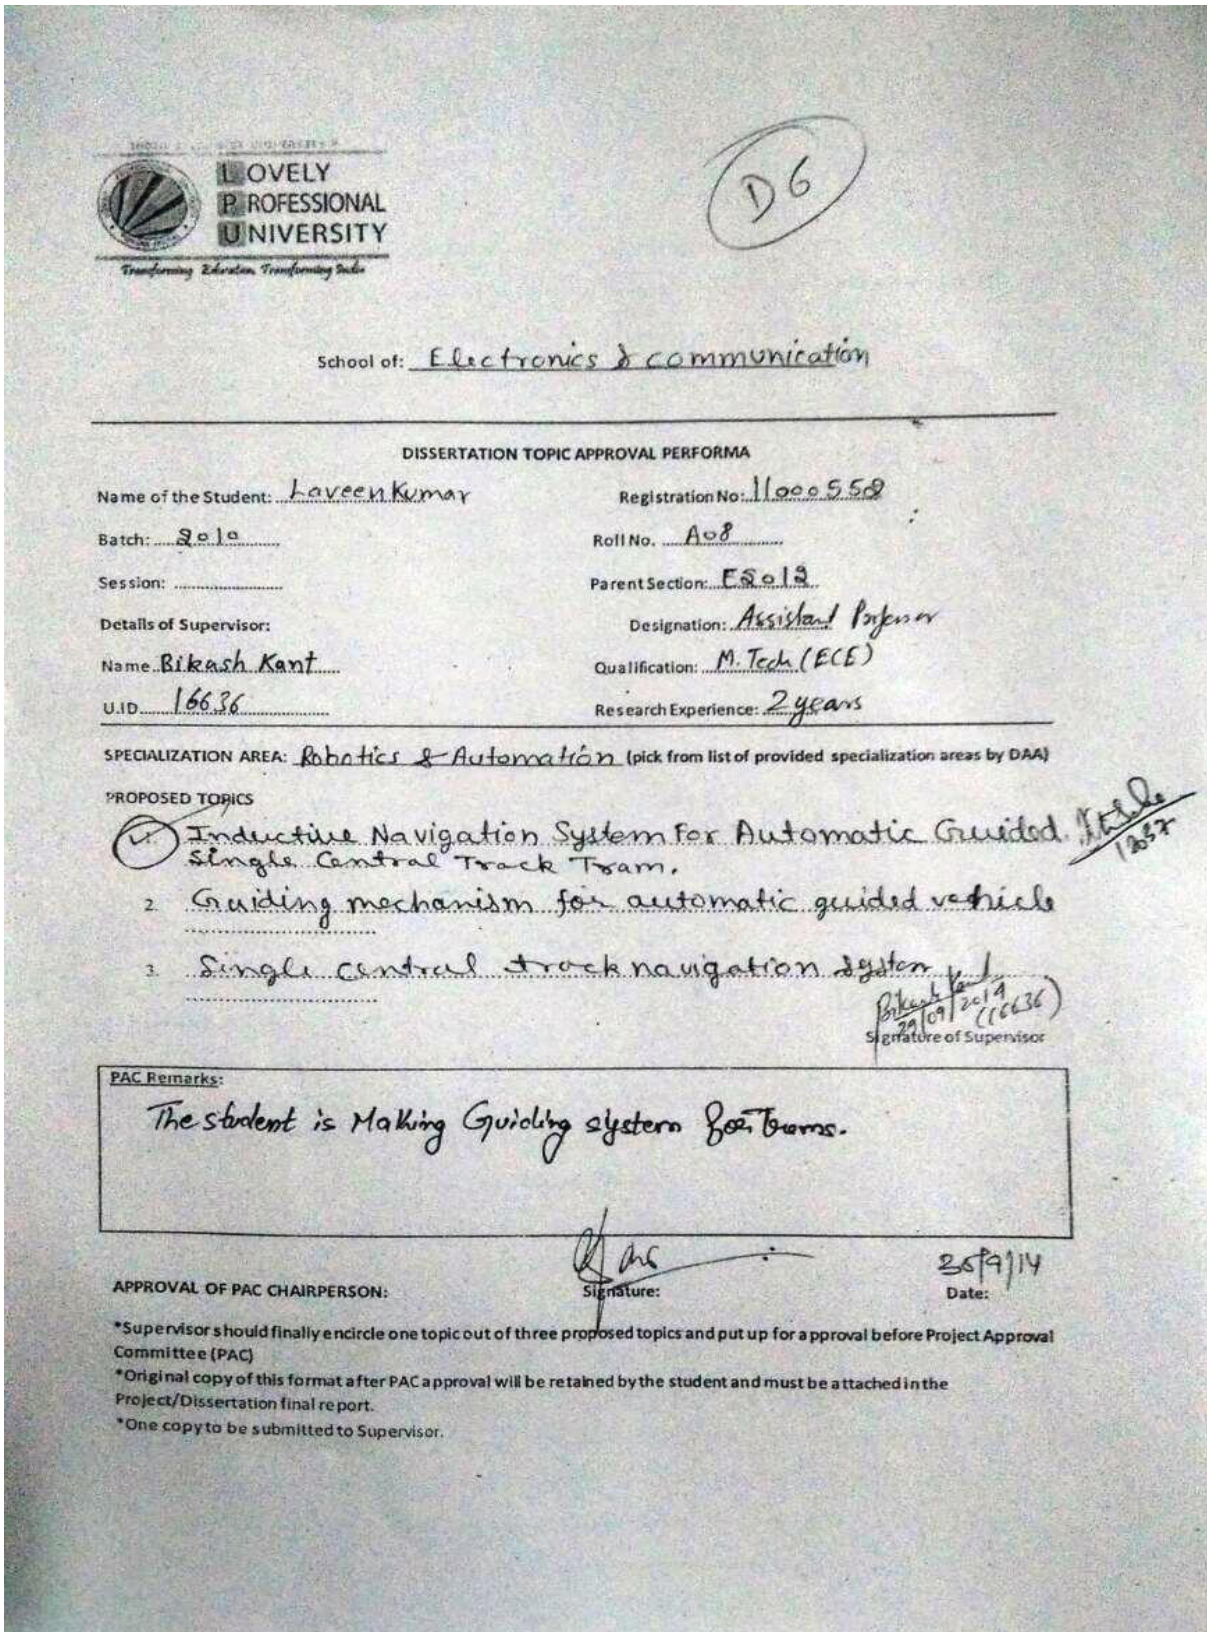 D6
LOVELY
PROFESSIONAL
UNIVERSITY
Transforming Education, Transforming India
School of: Electronics & communication
DISSERTATION TOPIC APPROVAL PERFORMA
Name of the Student: Laveen Kumar Registration No: 11000558
Batch: 2010 Roll No. A08
Session: Parent Section: E2012
Details of Supervisor: Designation: Assistant Professor
Name Bikash Kant Qualification: M.Tech (ECE)
U.ID 16636 Research Experience: 2 years
SPECIALIZATION AREA: Robotics & Automation (pick from list of provided specialization areas by DAA)
PROPOSED TOPICS
Inductive Navigation System For Automatic Guided
Single Central Track Tram.
2. Guiding mechanism for automatic guided vehicle
3. Single central track navigation system
Bikash Kant
29/09/2014 (16636)
Signature of Supervisor
PAC Remarks:
The student is Making Guiding system for Trams.
APPROVAL OF PAC CHAIRPERSON: Signature: Date:
*Supervisor should finally encircle one topic out of three proposed topics and put up for approval before Project Approval
Committee (PAC)
*Original copy of this format after PAC approval will be retained by the student and must be attached in the
Project/Dissertation final report.
*One copy to be submitted to Supervisor.